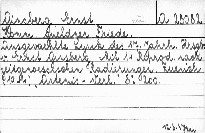 Ginsberg Ernst A 28082.
Komm, heiliger Friede.
Ausgewählte Lyrik des 17. Jahrh. Hrsg.
v. Ernst Ginsberg. Mit 11 Reprod. nach
zeitgenössischen Radierungen. Zuerich
"Artemis-Verl." 8° 9200.